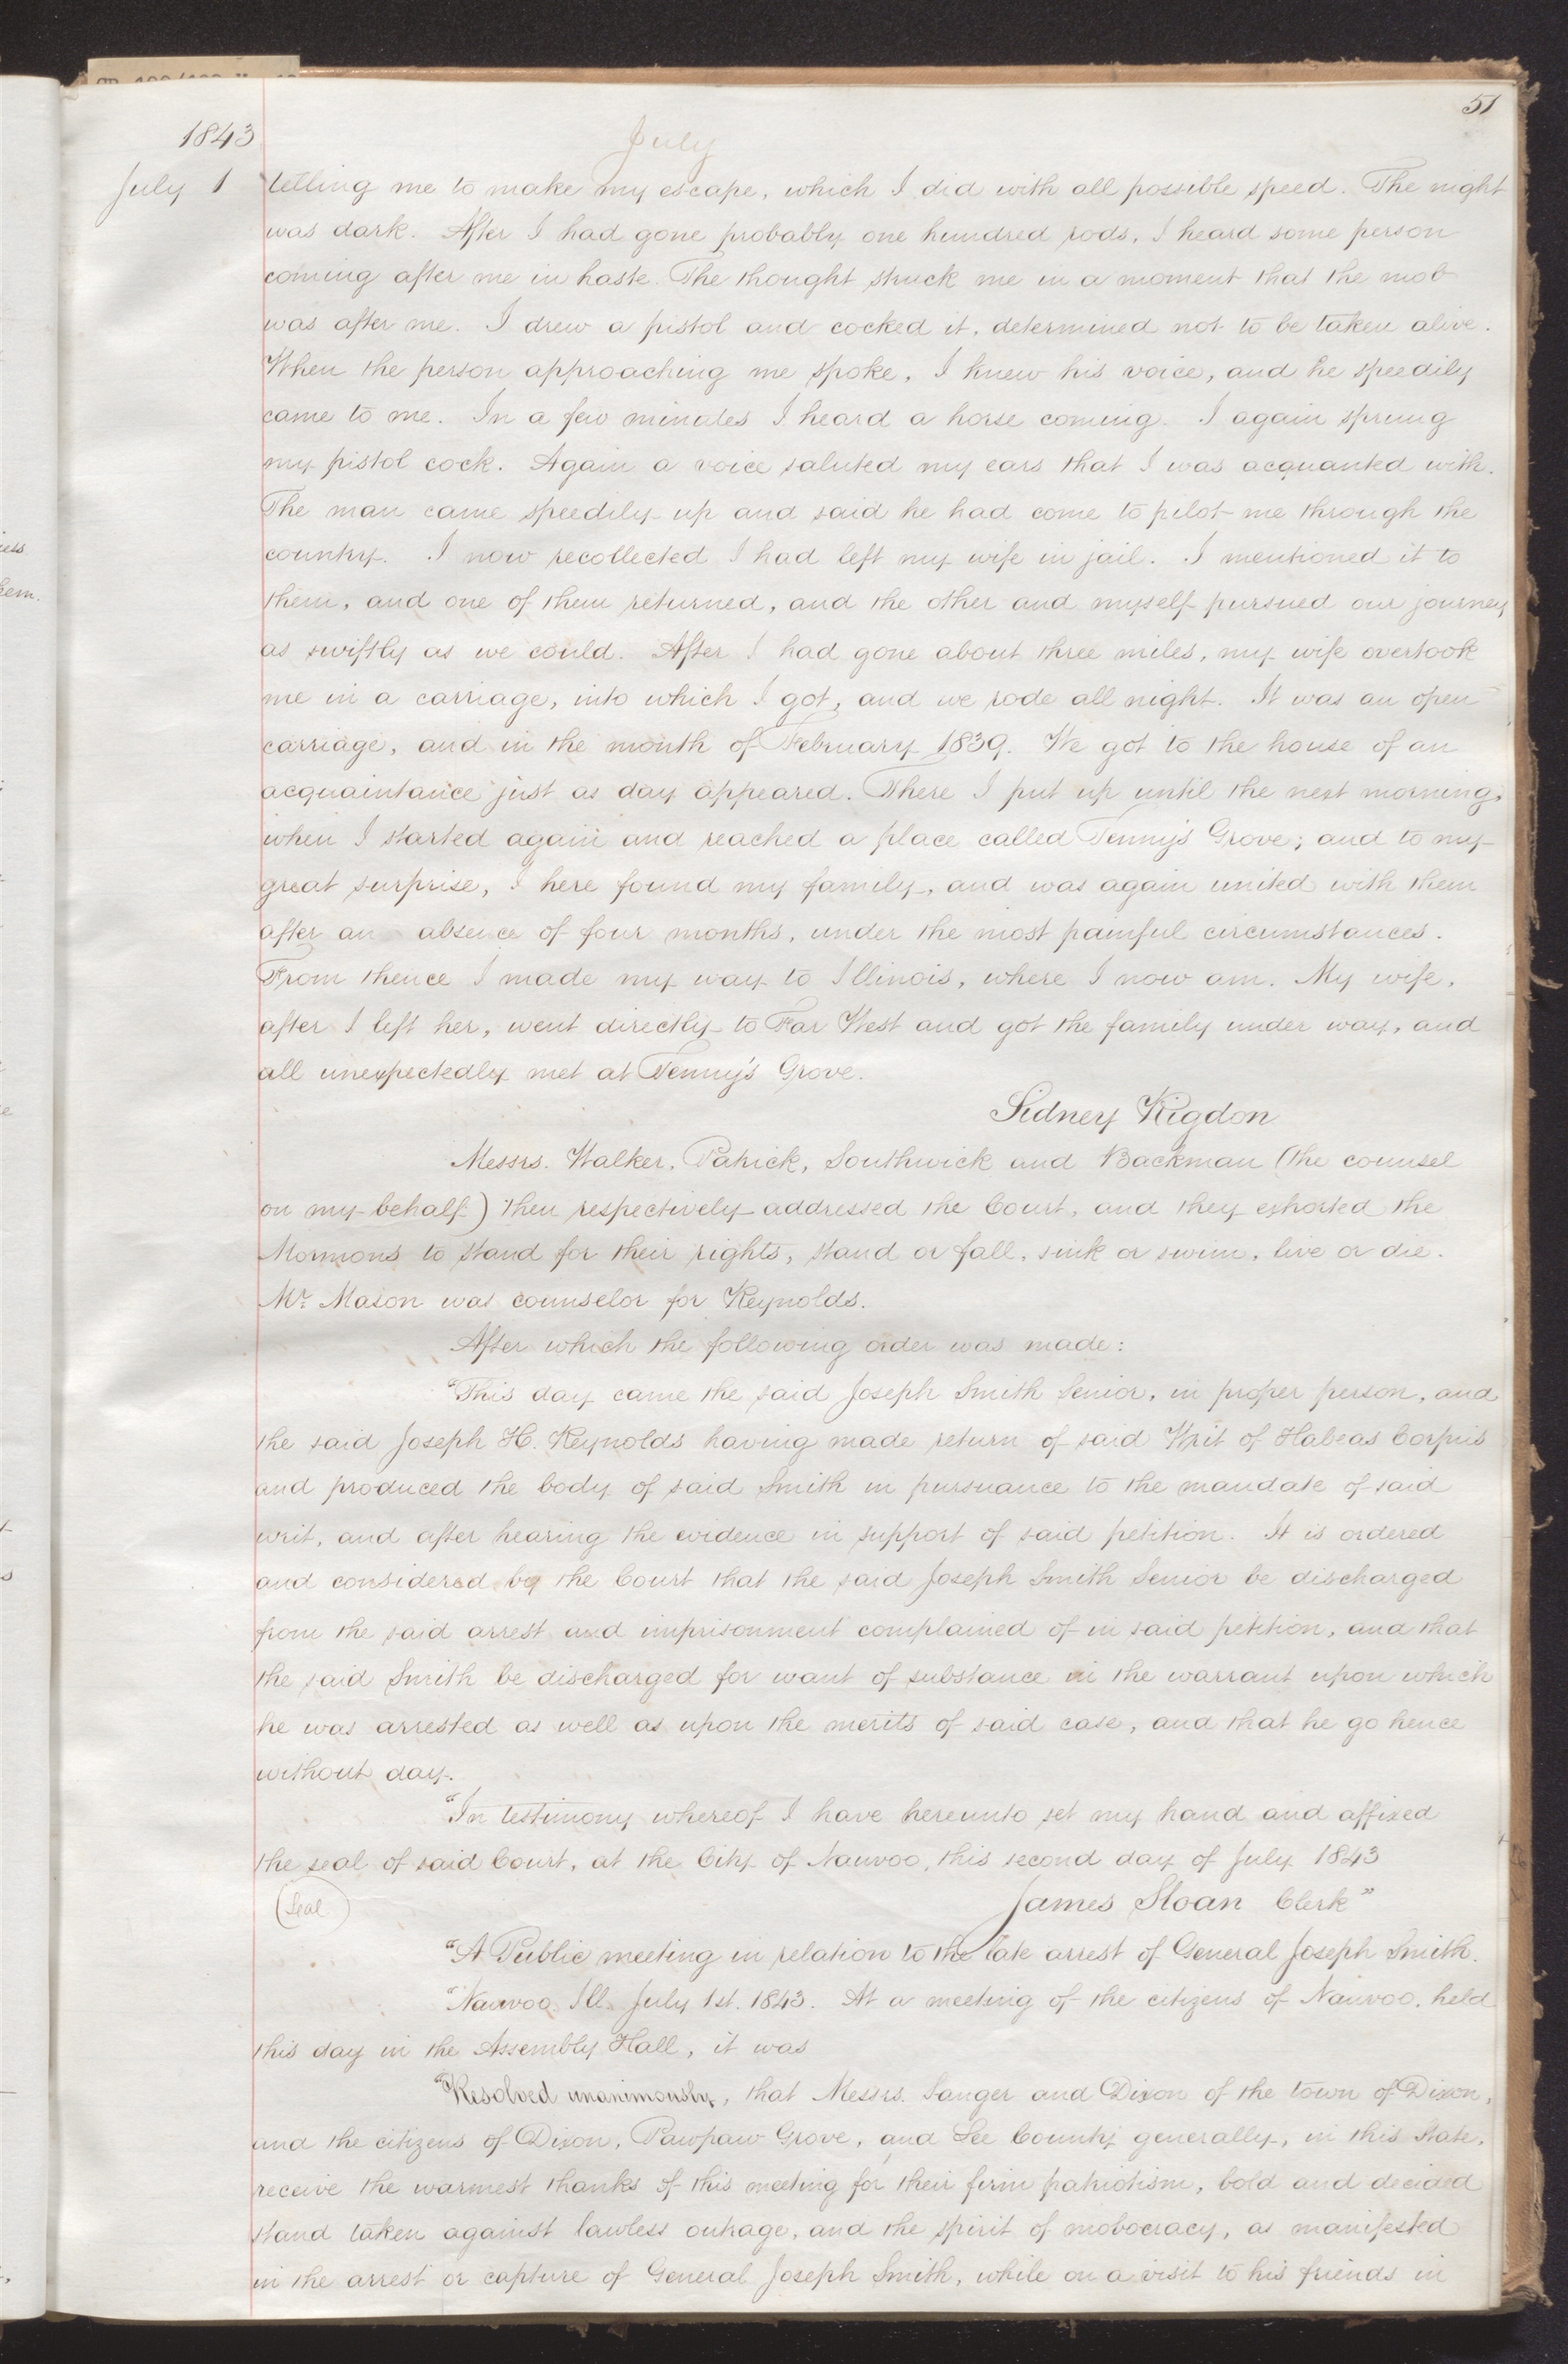 51
1843
July
July 1 telling me to make my escape, which I did with all possible speed. The night
was dark. After I had gone probably one hundred rods, I heard some person
coming after me in haste. The thought struck me in a moment that the mob
was after me. I drew a pistol and cocked it, determined not to be taken alive.
When the person approaching me spoke, I knew his voice, and he speedily
came to me. In a few minutes I heard a horse coming. I again sprung
my pistol cock. Again a voice saluted my ears that I was acquanted with.
The man came speedily up and said he had come to pilot me through the
country. I now recollected I had left my wife in jail. I mentioned it to
them, and one of them returned, and the other and myself pursued our journey
as swiftly as we could. After I had gone about three miles, my wife overtook
me in a carriage, into which I got, and we rode all night. It was an open
carriage, and in the month of February 1839. We got to the house of an
acquaintance just as day appeared. There I put up until the next morning,
when I started again and reached a place called Tenny's Grove; and to my
great surprise, I here found my family, and was again united with them
after an absence of four months, under the most painful circumstances.
From thence I made my way to Illinois, where I now am. My wife,
after I left her, went directly to Far West and got the family under way, and
all unexpectedly met at Tenny's Grove.
Sidney Rigdon
Messrs. Walker, Patrick, Southwick and Backman (the counsel
on my behalf) then respectively addressed the Court, and they exhorted the
Mormons to stand for their rights, stand or fall, sink or swim, live or die.
Mr. Mason was counselor for Reynolds.
After which the following order was made:
"This day came the said Joseph Smith Senior, in proper person, and
the said Joseph H. Reynolds having made return of said Writ of Habeas Corpus
and produced the body of said Smith in pursuance to the mandate of said
writ, and after hearing the evidence in support of said petition. It is ordered
and considered by the Court that the said Joseph Smith Senior be discharged
from the said arrest and imprisonment complained of in said petition, and that
the said Smith be discharged for want of substance in the warrant upon which
he was arrested as well as upon the merits of said case, and that he go hence
without day.
"In testimony whereof I have hereunto set my hand and affixed
the seal of said Court, at the City of Nauvoo, this second day of July 1843
(Seal) James Sloan Clerk"
"A Public meeting in relation to the late arrest of General Joseph Smith.
"Nauvoo Ill. July 1st. 1843. At a meeting of the citizens of Nauvoo, held
this day in the Assembly Hall, it was
"Resolved unanimously, that Messrs. Sanger and Dixon of the town of Dixon,
and the citizens of Dixon, Pawpaw Grove, and Lee County generally, in this State,
receive the warmest thanks of this meeting for their firm patriotism, bold and decided
stand taken against lawless outrage, and the spirit of mobocracy, as manifested
in the arrest or capture of General Joseph Smith, while on a visit to his friends in